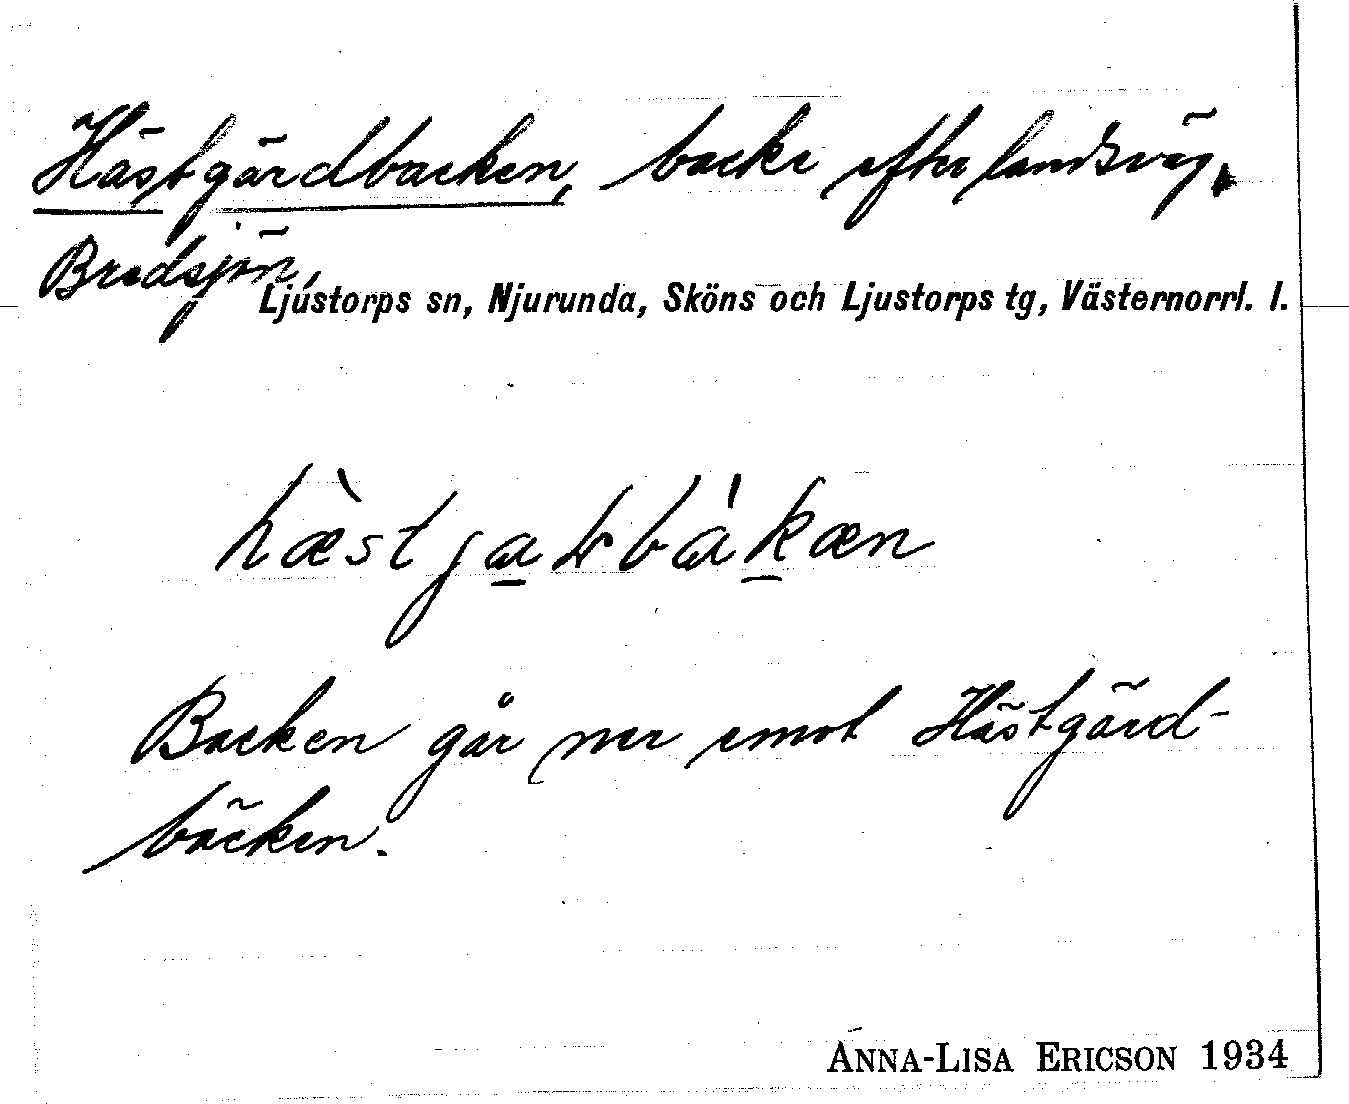 Hästgärdbacken, backe efter landsväg,
Bredsjön,
Ljustorps sn, Njurunda, Sköns och Ljustorps tg, Västernorrl. l.
Backen går ner emot Hästgärd-
bäcken.
ANNA-LISA ERICSON 1934